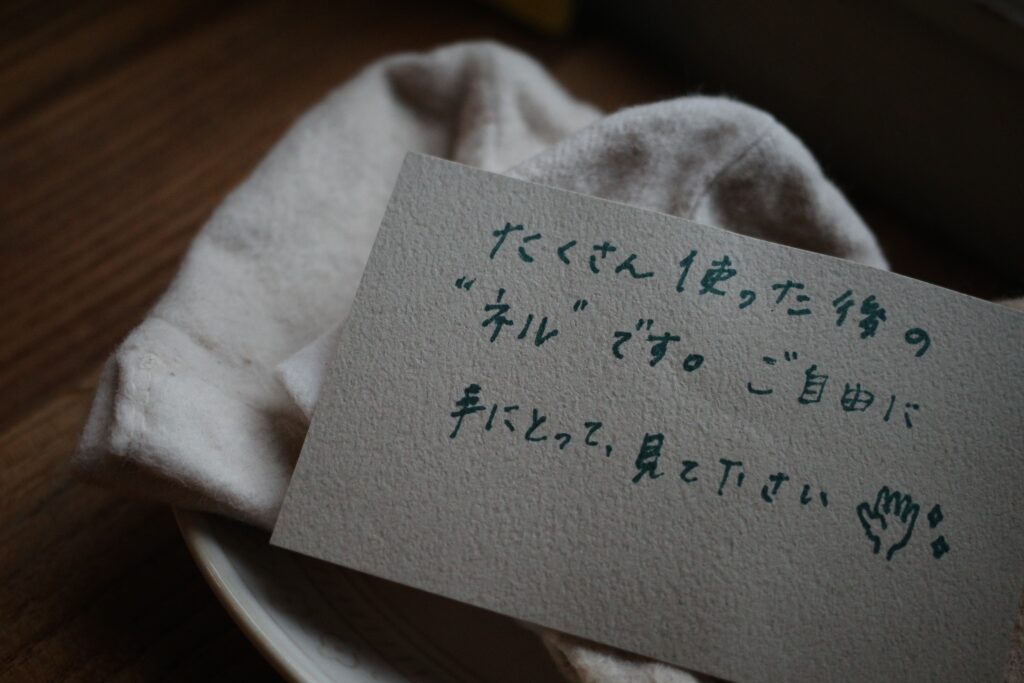 たくさん使った後の
“ネル”です。ご自由に
手にとって、見て下さい